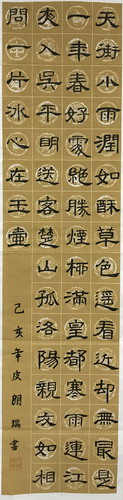 天街小雨潤如酥草色遙看近却無最是
一年春好處絕勝煙柳滿皇都寒雨連江
夜入吳平明送客楚山孤洛陽親友如相
問一片冰心在玉壺
己亥皮朗瑞書